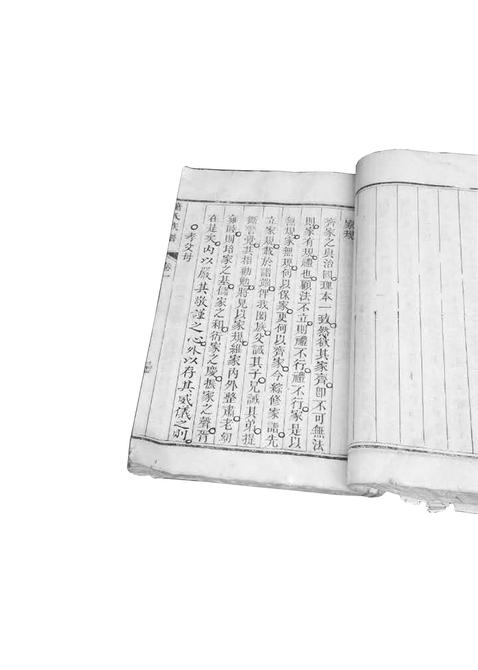 家規
齊家之與治國理本一致然欲其家齊即不可無法
則家有規禮也顧法不立則禮不行禮不行家是以
無規家無規何以保家更何以齊家今綜修家譜先
立家規載於譜端俾我闔族父誡其子兄誡其弟提
其相勸勉將見以家規維家內外整肅老幼
時則培家之基信家之和術家之慶振家之聲胥
在是矣內以嚴其敬謹之心外以存其威儀之則
孝父母
氏族譜 卷一